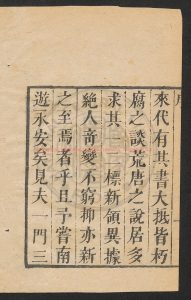 來代有其書大抵皆朽
腐之談荒唐之說居多
求其一二標新領異據
絕人竒變不窮抑亦新
之至焉者乎且予嘗南
遊永安矣見夫一門三